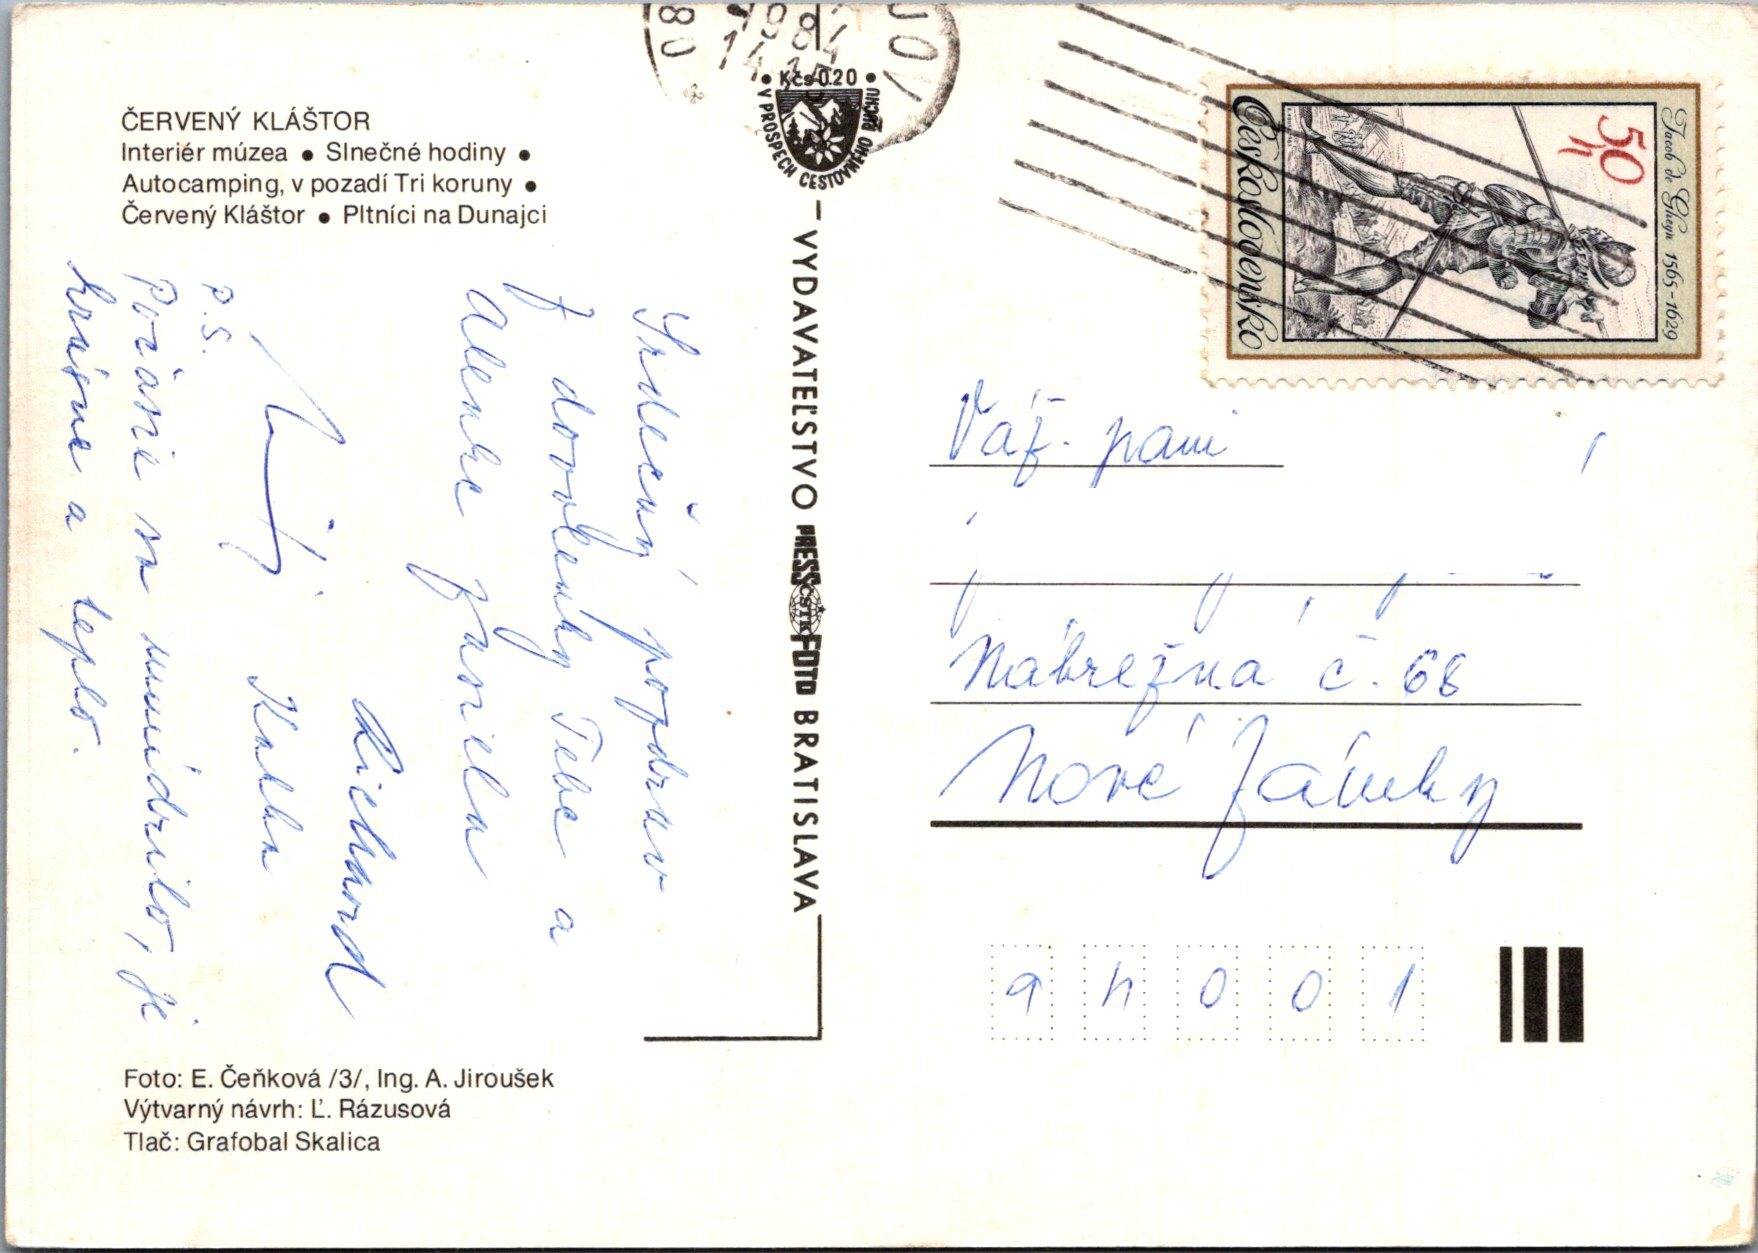 ČERVENÝ KLÁŠTOR
Interiér múzea ● Slnečné hodiny ●
Autocamping, v pozadí Tri koruny ●
Červený Kláštor ● Pltníci na Dunajci
Srdečný pozdrav
z dovolenky Tebe a
Alenke posiela
Richard
Katka
P.S.
Počasie sa umúdrilo, je
krásne a teplo.
Foto: E. Čeňková /3/, Ing. A. Jiroušek
Výtvarný návrh: Ľ. Rázusová
Tlač: Grafobal Skalica
1984
14
080
JOV
● Kčs 0.20 ●
V PROSPECH CESTOVNÉHO RUCHU
VYDAVATEĽSTVO PRESSFOTO BRATISLAVA
ČSTK
50 h
Československo
Jacob de Gheyn 1565-1629
Váž. pani
Nábrežná č. 68
Nové Zámky
94001